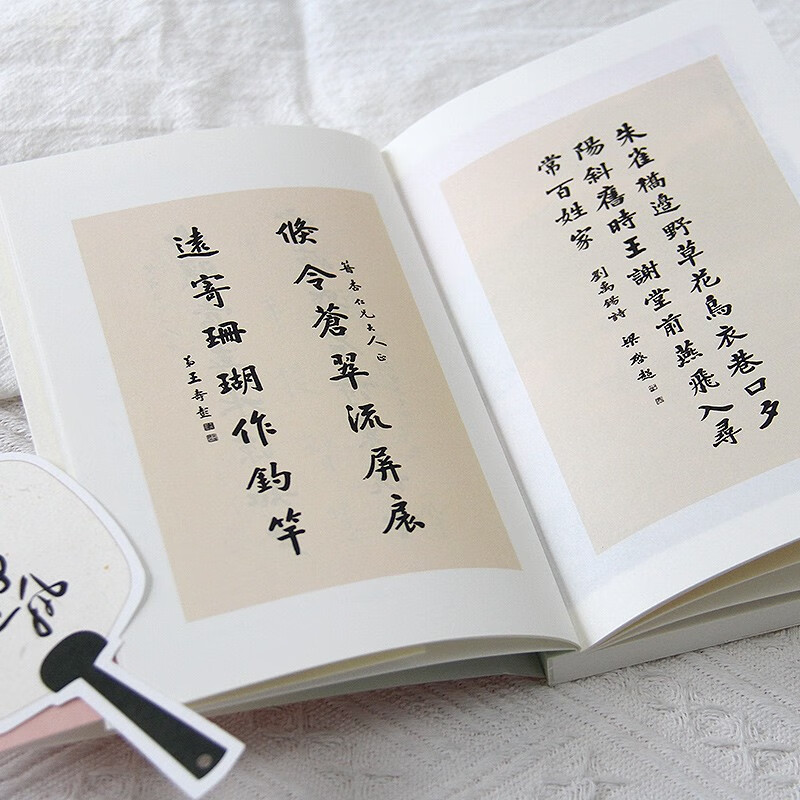 朱雀橋邊野草花烏衣巷口夕
陽斜舊時王謝堂前燕飛入尋
常百姓家
劉禹錫詩 梁啓超
倐令蒼翠流屏扆
仁兄大人正
遠寄珊瑚作釣竿
弟王